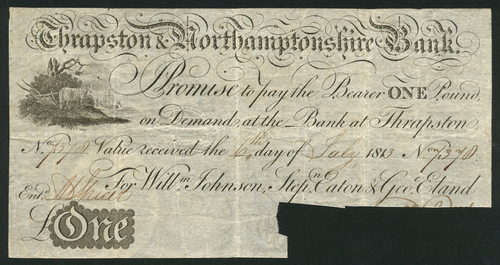 Thrapston & Northamptonshire Bank.
Promise to pay the Bearer ONE Pound
on Demand, at the Bank at Thrapston
Value received the 6th day of July 1813
For Willm Johnson, Stepn Eaton & Geoe Eland
Entd
£One